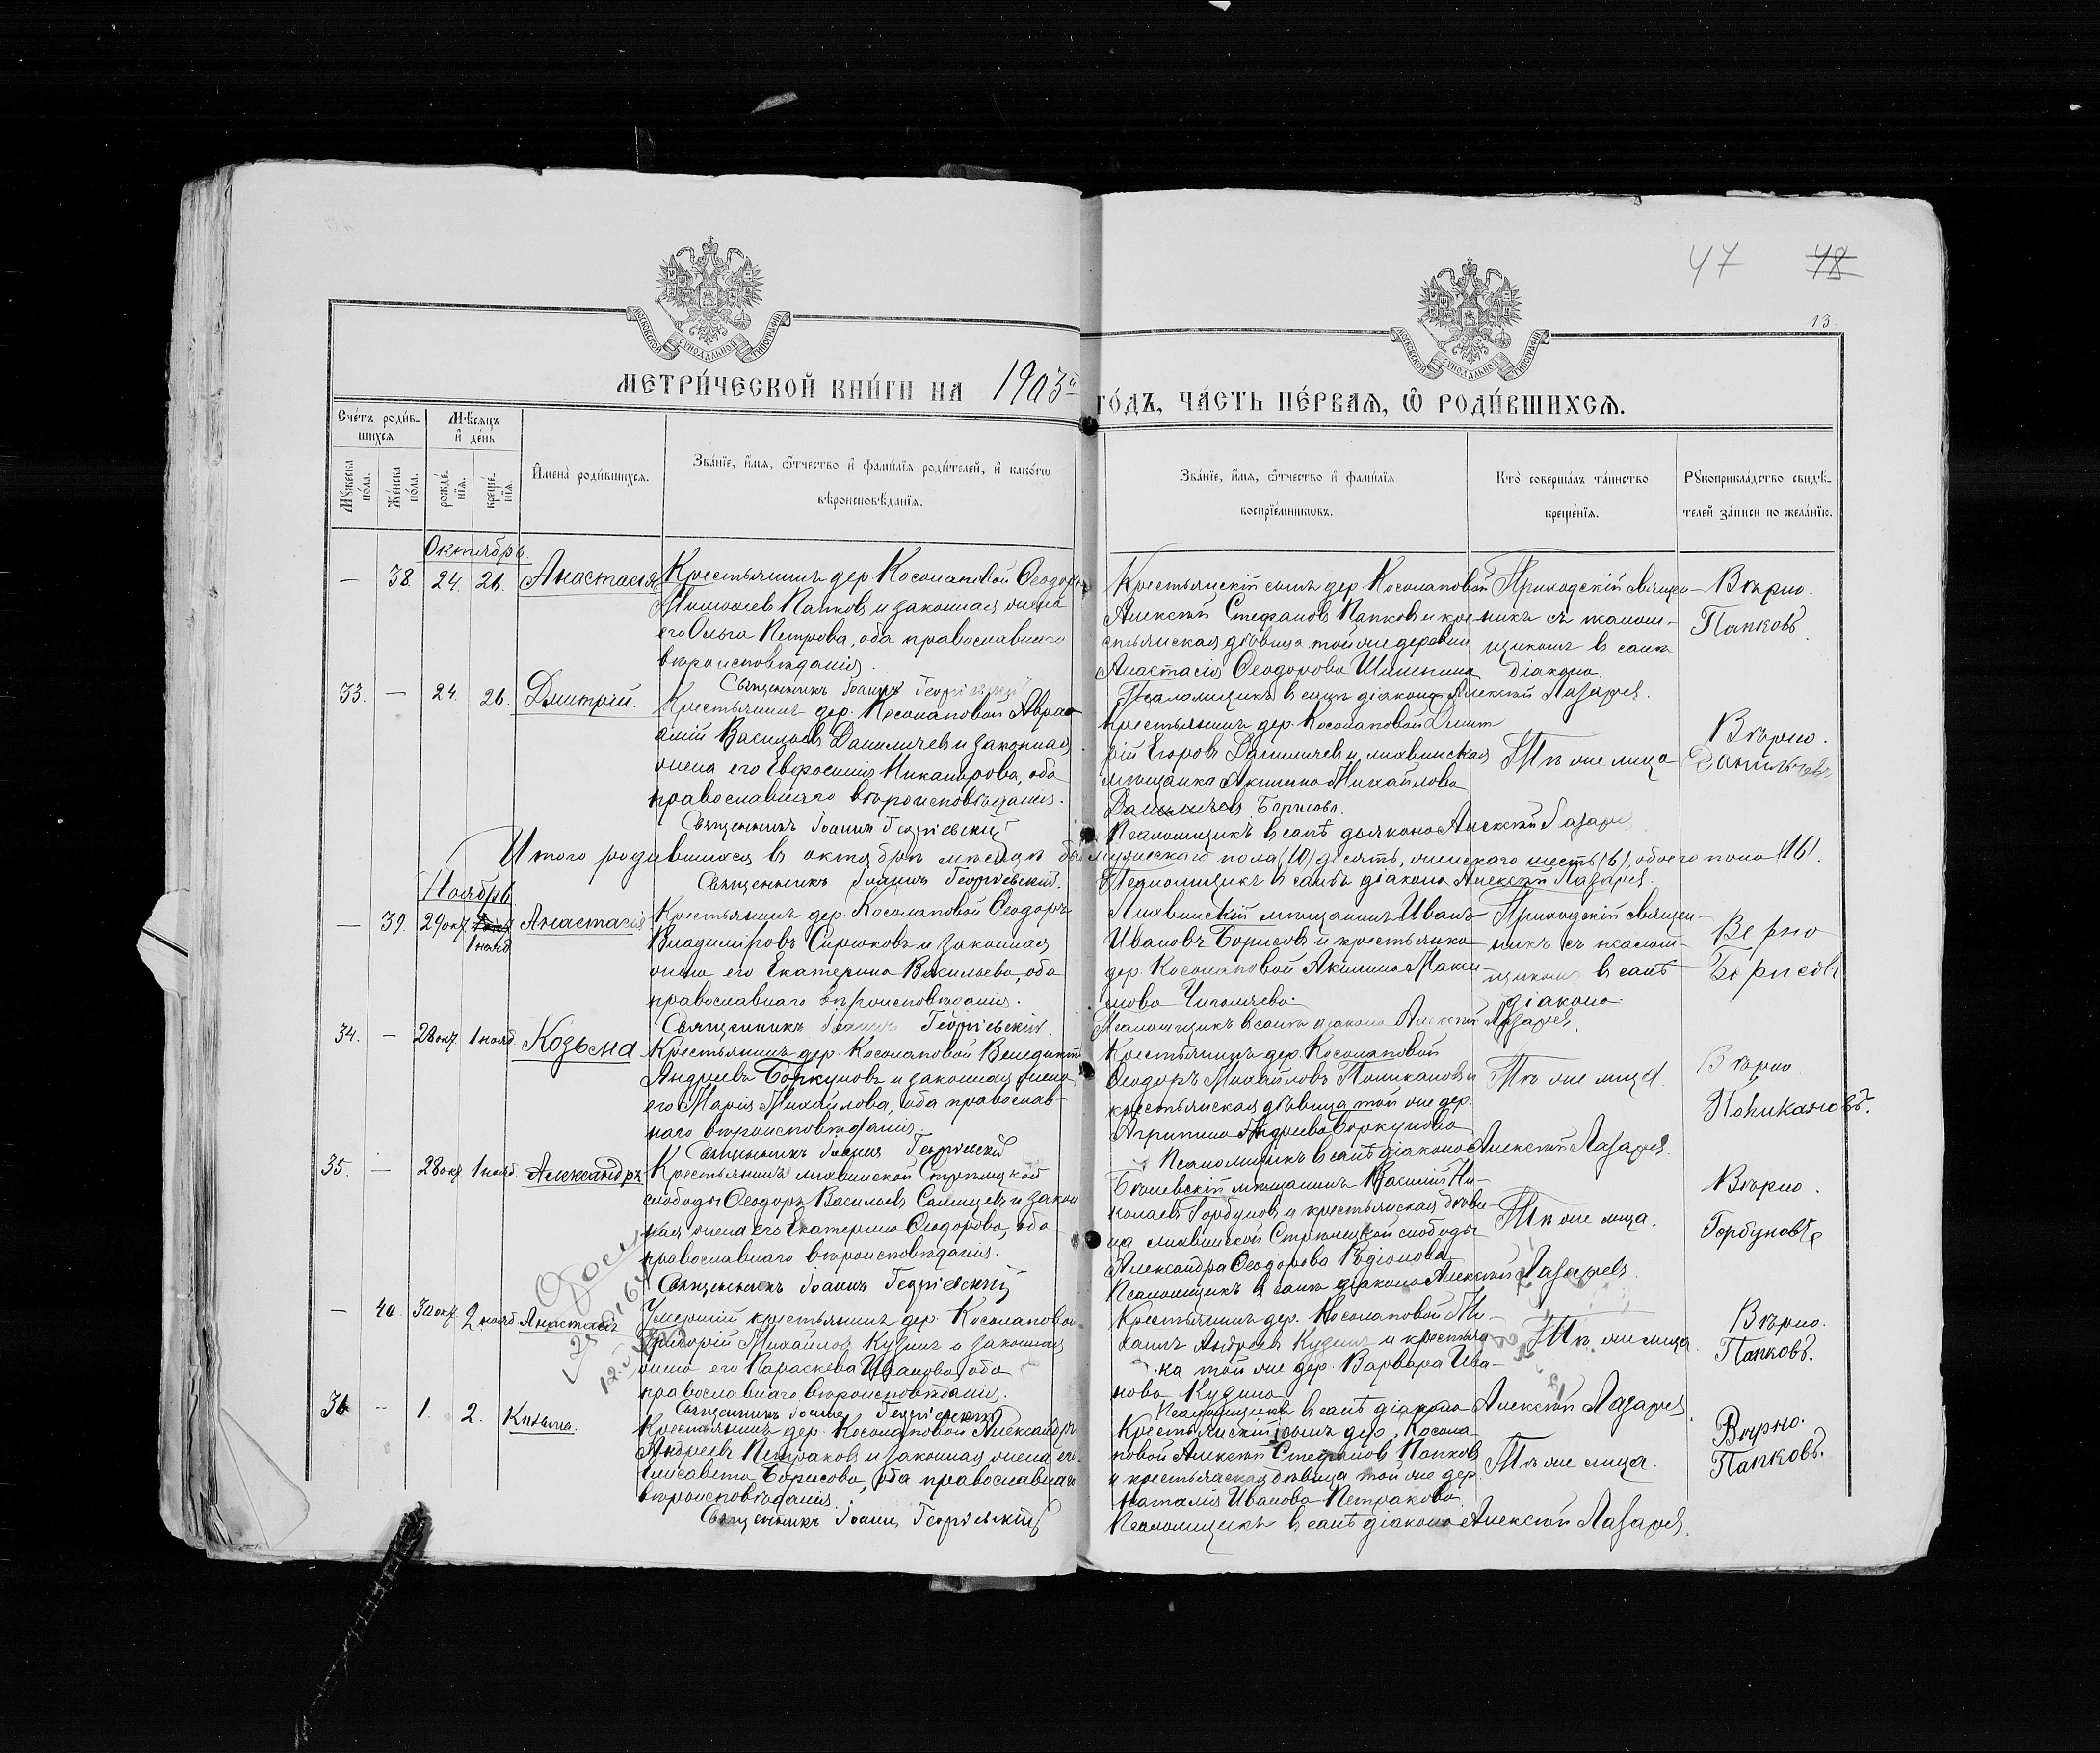 47 48
13.
МОСКОВСКОЙ СУНОДАЛЬНОЙ ТИПОГРАФІИ
МОСКОВСКОЙ СУНОДАЛЬНОЙ ТИПОГРАФІИ
МЕТРИ́ЧЕСКОЙ КНИ́ГИ НА 1903й ГО́ДЪ, ЧА́СТЬ ПЕ́РВАѦ, Ѡ҆ РОДИ́ВШИХСѦ.
Сче́тъ роди́в-
шихсѧ
Мѣ́сѧцъ
и҆ де́нь
Мꙋ́жеска
по́ла.
Же́нска
по́ла.
рожде́-
нїѧ.
креще́-
нїѧ.
И҆мена̀ роди́вшихсѧ.
Зва́нїе, и҆́мѧ, ѻ҆́тчество и҆ фами́лїѧ роди́телей, и҆ како́гѡ
вѣроисповѣ́данїѧ.
Зва́нїе, и҆́мѧ, ѻ҆́тчество и҆ фами́лїѧ
воспрїе́мникѡвъ.
Кто̀ соверша́лъ та́инство
креще́нїѧ.
Рꙋкоприкла́дство свидѣ́-
телей за́писи по жела́нїю.
Октябрь.
— 38. 24. 26. Анастасія
Крестьянинъ дер. Косолаповой Ѳеодоръ
Папковъ и законная жена
его Ольга Петрова, оба православнаго
вѣроисповѣданія.
Священникъ Іоаннъ Георгіевскій
Крестьянскій сынъ дер. Косолаповой
Алексѣй Стефановъ Папковъ и кре-
стьянская дѣвица той же деревни
Анастасія Ѳеодорова Шишкина
Псаломщикъ в санѣ діакона Алексѣй Лазаревъ.
Приходскій священ-
никъ съ псалом-
щикомъ в санѣ
діакона.
Вѣрно.
Папковъ.
33. — 24. 26. Дмитрій.
Крестьянинъ дер. Косолаповой Авра-
амій Васильевъ Данилычевъ и законная
жена его Евфросинія Никанорова, оба
православнаго вѣроисповѣданія.
Священникъ Іоаннъ Георгіевскій
Крестьянинъ дер. Косолаповой Димит
рій Егоровъ Данилычевъ и лихвинская
мѣщанка Акилина Михайлова
Борисова.
Псаломщикъ в санѣ дьякона Алексѣй Лазаревъ
Тѣ же лица
Вѣрно.
Данилычевъ
Итого родившихся въ октябрѣ мѣсяцѣ бы мужескаго пола (10) десять, женскаго шесть (6), обоего пола (16).
Священникъ Іоаннъ Георгіевскій.
Псаломщикъ в санѣ діакона Алексѣй Лазаревъ.
Ноябрь.
— 39. 29 окт. 1 нояб Анастасія
Крестьянинъ дер. Косолаповой Ѳеодоръ
Владиміровъ Сирюковъ и законная
жена его Екатерина Васильева, оба
православнаго вѣроисповѣданія.
Священникъ Іоаннъ Георгіевскій.
Лихвинскій мѣщанинъ Иванъ
Ивановъ Борисовъ и крестьянка
дер. Косолаповой Акилина Макси
мова
Псаломщикъ в санѣ діакона Алексѣй Лазаревъ.
Приходскій священ-
никъ съ псалом-
щикомъ в санѣ
діакона.
Верно
Борисовъ
34. — 28 окт. 1 нояб. Козьма
Крестьянинъ дер. Косолаповой Венедиктъ
Андреевъ Боркуновъ и законная жена
его Марія Михайлова, оба православ-
наго вѣроисповѣданія.
Священникъ Іоаннъ Георгіевскій
Крестьянинъ дер. Косолаповой
Ѳеодоръ Михайловъ Поликановъ и
крестьянская дѣвица той же дер.
Агрипина Андреева Боркунова
Псаломщикъ в санѣ діакона Алексѣй Лазаревъ.
Тѣ же лица.
Вѣрно.
Поликановъ.
35. — 28 окт. 1 нояб. Александръ
Крестьянинъ лихвинской Стрѣлецкой
слободы Ѳеодоръ Васильевъ и закон
ная жена его Екатерина Ѳеодорова, оба
православнаго вѣроисповѣданія.
Священникъ Іоаннъ Георгіевскій
Бѣлевскій мѣщанинъ Василій Ни-
колаевъ Горбуновъ и крестьянская дѣви-
ца лихвинской Стрѣлецкой слободы
Александра Ѳеодорова Родіонова
Псаломщикъ в санѣ діакона Алексѣй Лазаревъ.
Тѣ же лица.
Вѣрно.
Горбуновъ
— 40. 30 окт. 2 нояб Анастасія
Умершій крестьянинъ дер. Косолаповой
Григорій Михайловъ Кузинъ и законная
жена его Параскева Иванова, оба
православнаго вѣроисповѣданія.
Священникъ Іоаннъ Георгіевскій
Крестьянинъ дер. Косолаповой Ми-
хаилъ Андреевъ Кузинъ и крестьян
ка той же дер. Варвара Ива-
нова Кузина
Псаломщикъ в санѣ діакона Алексѣй Лазаревъ.
Тѣ же лица.
Вѣрно.
Папковъ.
36 — 1. 2. Козьма.
Крестьянинъ дер. Косолаповой Александръ
Андреевъ Петраковъ и законная жена его
Елисавета Борисова, оба православнаго
вѣроисповѣданія.
Священникъ Іоаннъ Георгіевскій
Крестьянскій сынъ дер. Косола-
повой Алексѣй Стефановъ Папковъ
и крестьянская дѣвица той же дер.
Наталія Иванова Петракова.
Псаломщикъ в санѣ діакона Алексѣй Лазаревъ.
Тѣ же лица.
Вѣрно.
Папковъ.